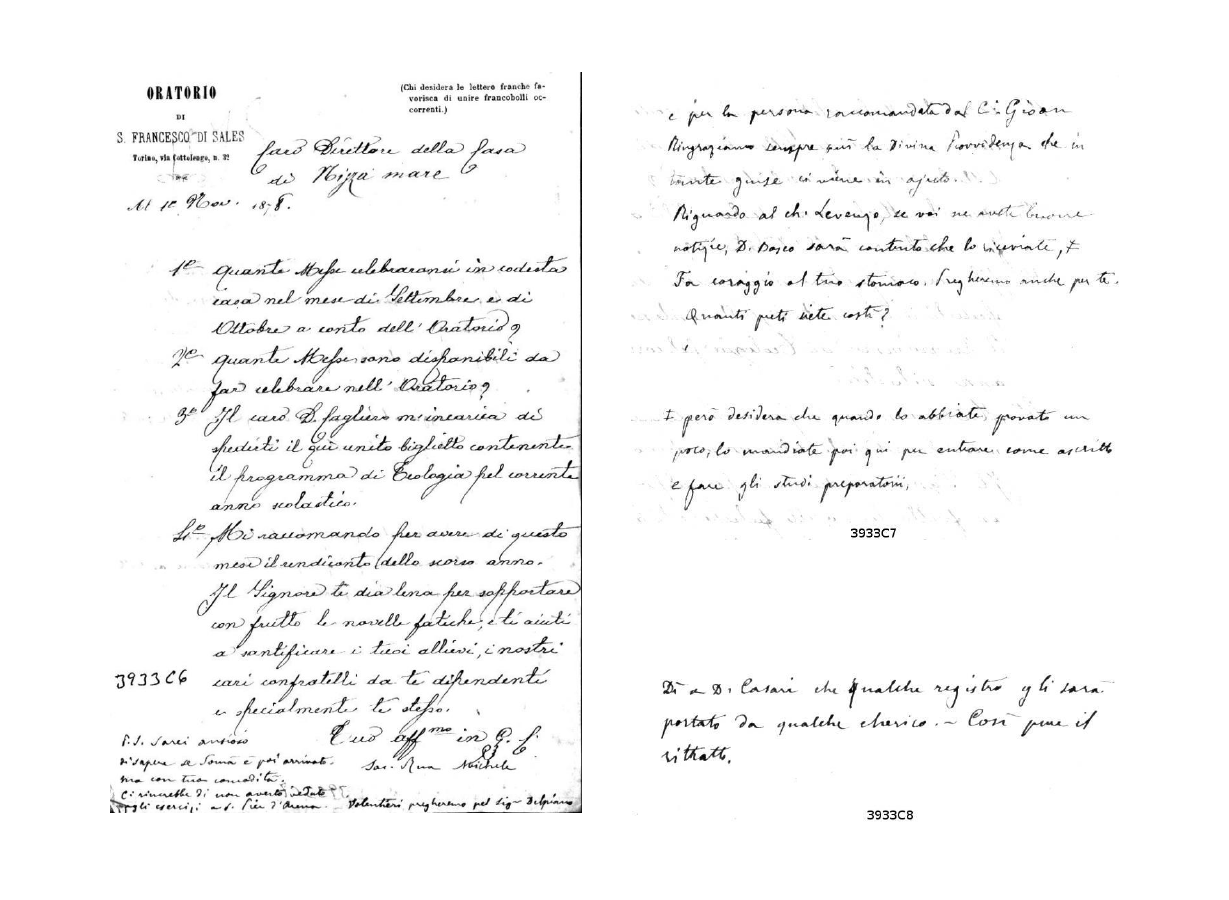 ORATORIO
DI
S. FRANCESCO DI SALES
Torino, via Cottolengo, n. 32
(Chi desidera le lettere franche fa-
vorisca di unire francobolli oc-
correnti.)
Caro Direttore della Casa
di Nizza mare
Nov. 1878.
1º Quante Messe celebraronsi in codesta
casa nel mese di Settembre e di
Ottobre a conto dell' Oratorio?
2º quante Messe sono disponibili da
far celebrare nell' Oratorio?
3º Il caro D. Cagliero m'incarica di
spedirti il quì unito biglietto contenente
il programma di Teologia pel corrente
anno scolastico.
4º Mi raccomando per avere di questo
mese il rendiconto dello scorso anno.
Il Signore ti dia lena per sopportare
con frutto le novelle fatiche, e ti aiuti
a santificare i tuoi allievi, i nostri
cari confratelli da te dipendenti
e specialmente te stesso.
3933C6
Tuo aff mo in G. C.
Sac. Rua Michele
P.S. Sarei ansioso
di sapere se Somà è poi arrivato.
ma con tua comodità.
Ci rincrebbe di non averti veduto
agli esercizi a S. Pier d'Arena. - Volentieri pregheremo pel Sig. Delpiano
e per la persona raccomandata dal Ch. Giovan
Ringraziamo sempre più la Divina Provvidenza che in
tante guise ci viene in ajuto.
Riguardo al ch. Levengo, se voi ne avete buone
notizie, D. Bosco sarà contento che lo riceviate, +
Fa coraggio al tuo stomaco. Pregheremo anche per te.
Quanti preti siete costì?
+ però desidera che quando lo abbiate provato un
poco, lo mandiate poi qui per entrare come ascritto
e fare gli studi preparatorii,
3933C7
Dì a D. Casari che qualche registro gli sarà
portato da qualche cherico. ~ Così pure il
ritratto.
3933C8